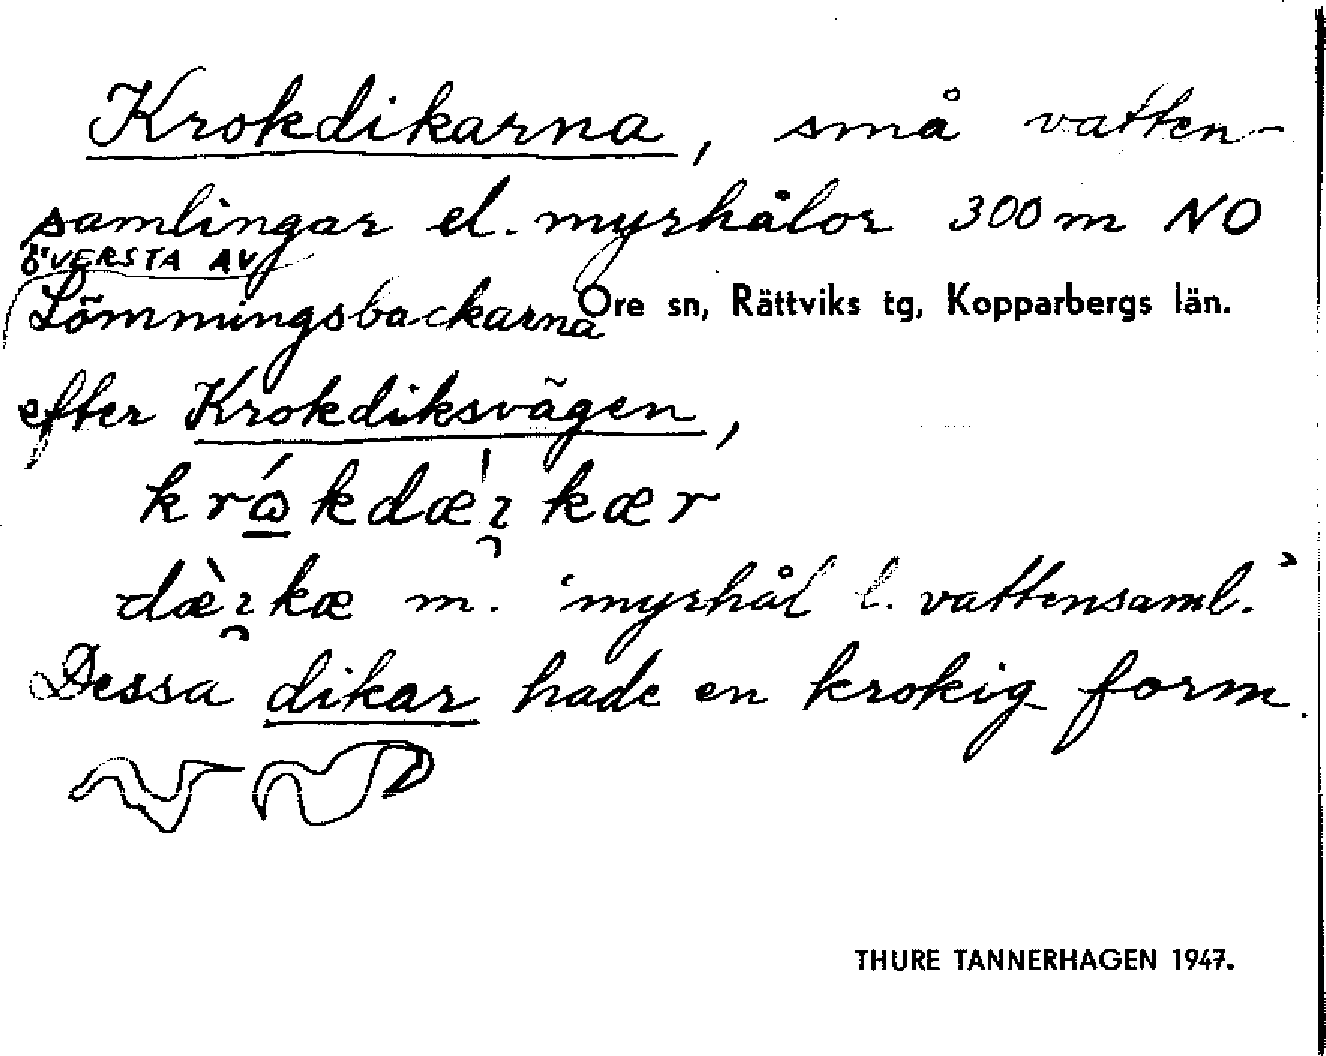 Krokdikarna, små vatten-
samlingar el. myrhålor 300 m NO
ÖVERSTA AV
Lömmingsbackarna
Ore sn, Rättviks tg, Kopparbergs län.
efter Krokdiksvägen,
m. ‘myrhål l. vattensaml.’
Dessa dikar hade en krokig form.
THURE TANNERHAGEN 1947.